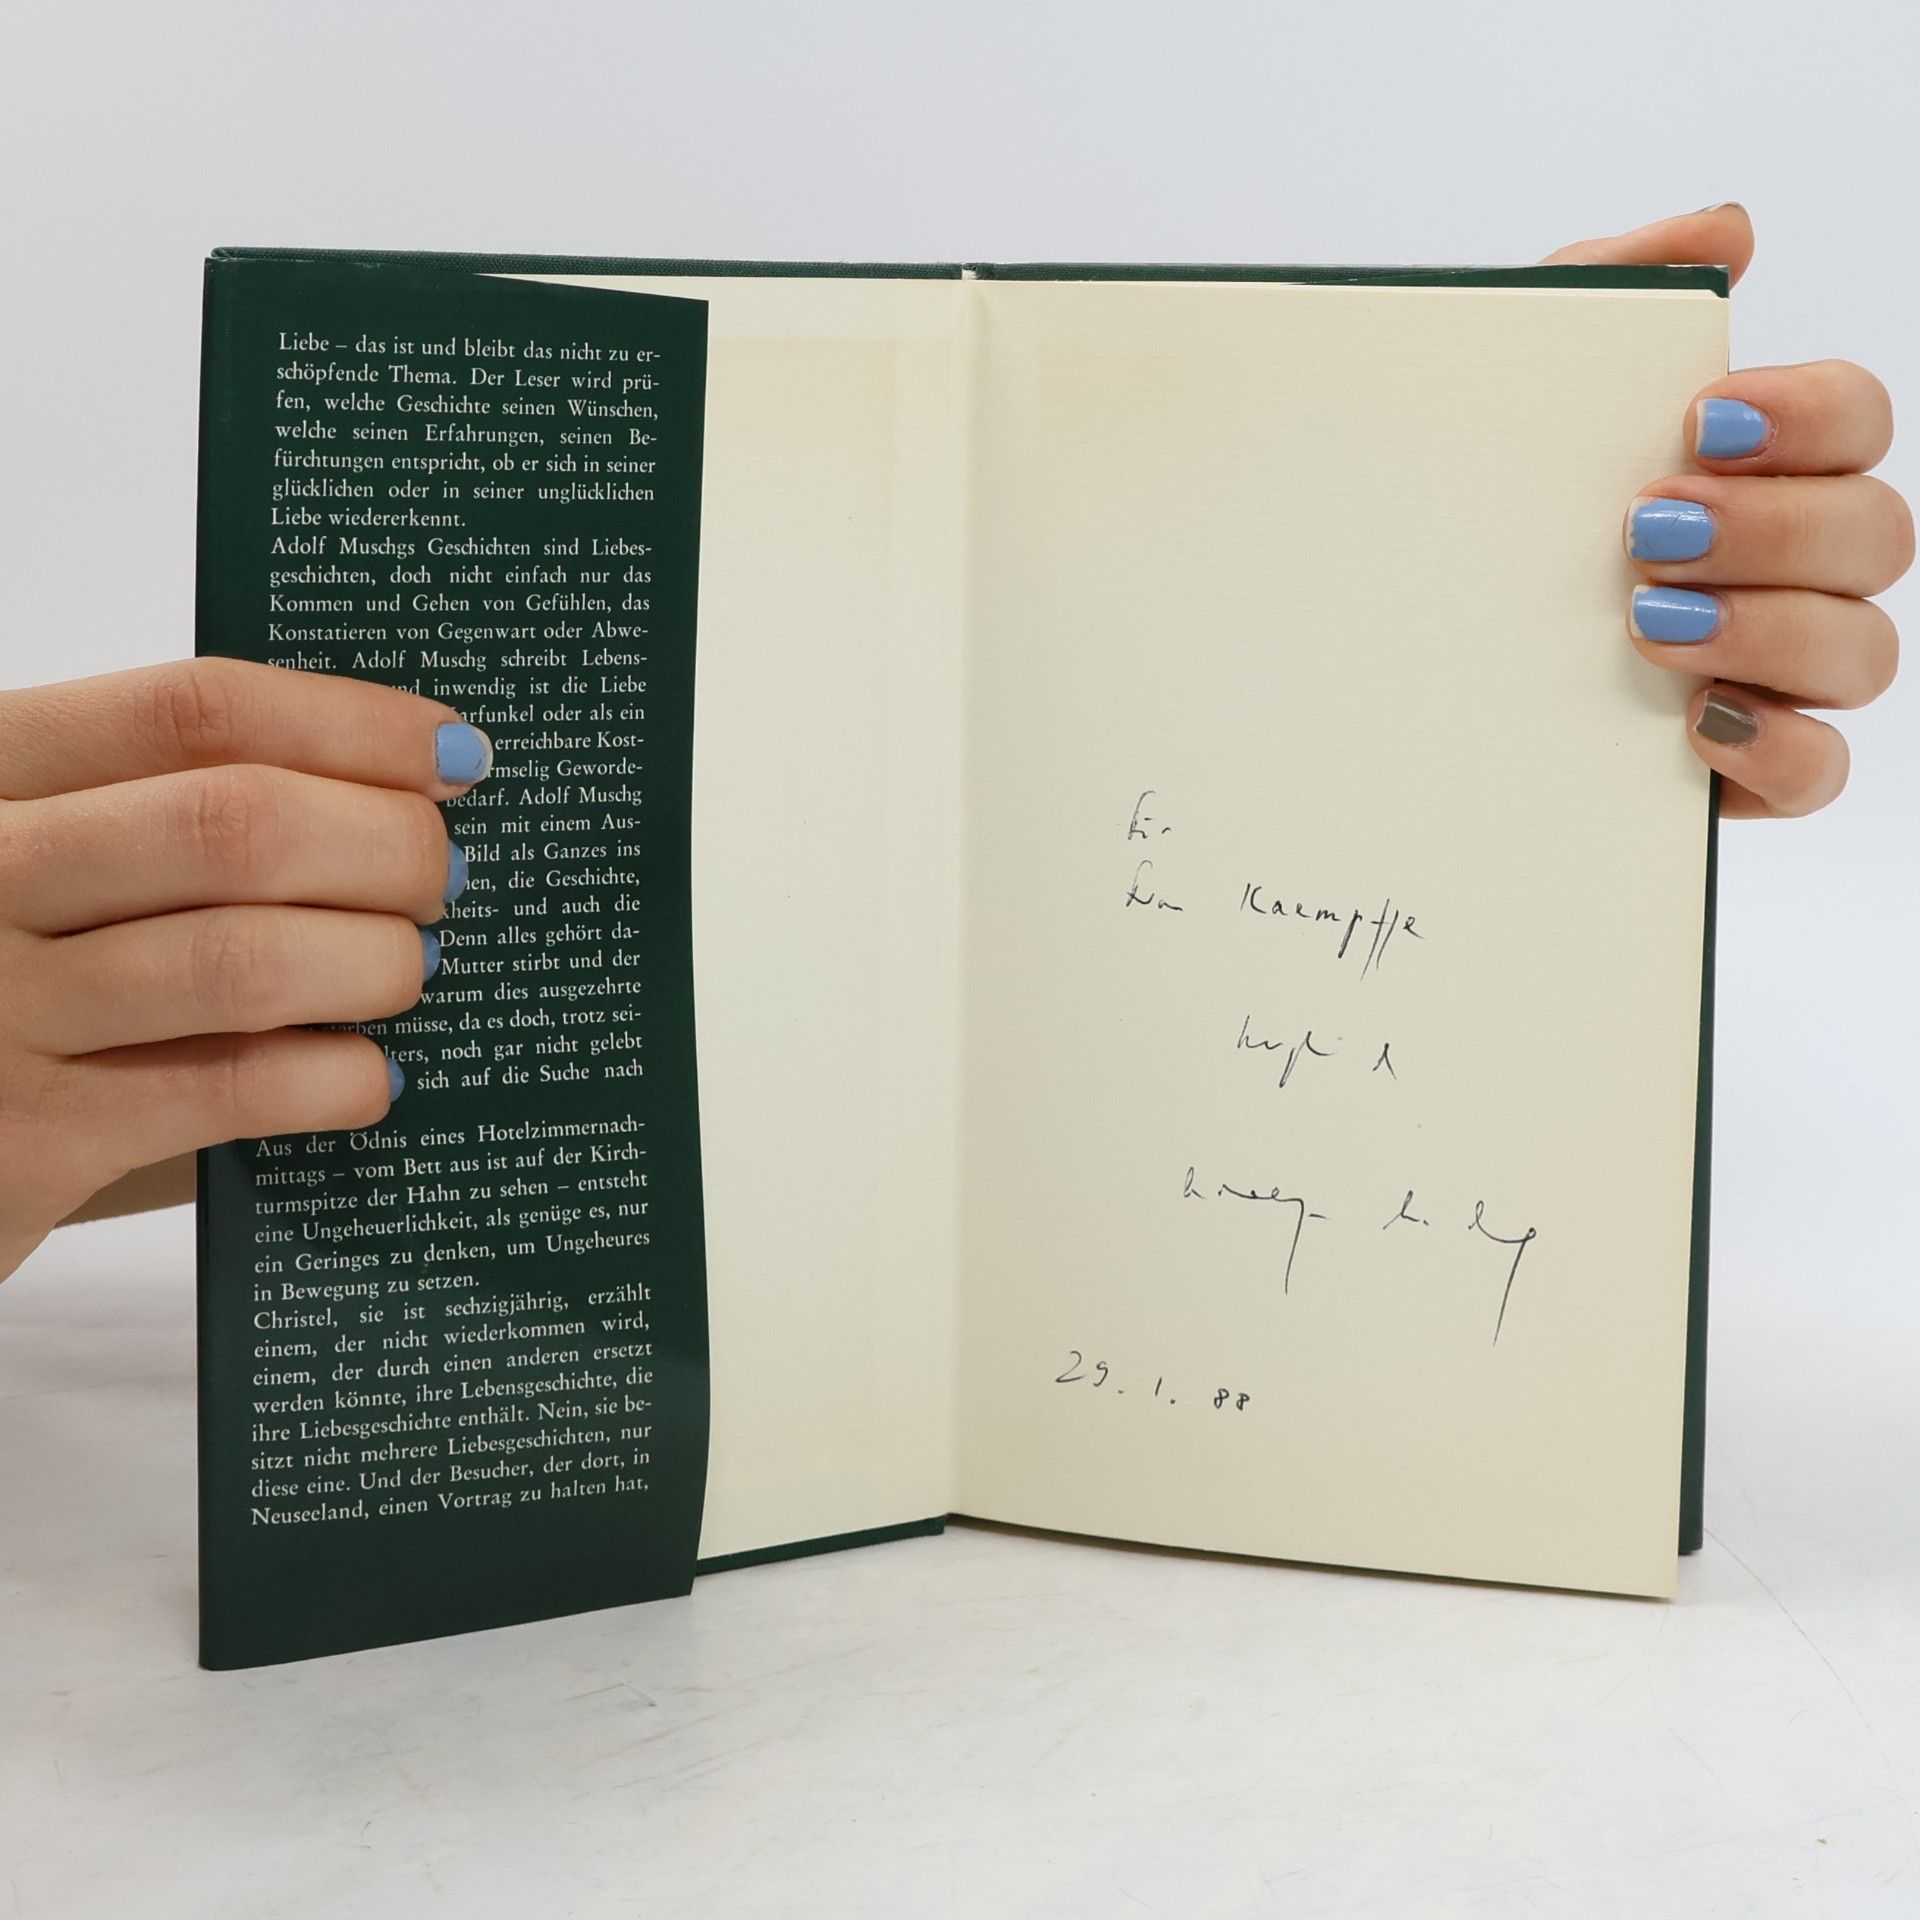 Liebe – das ist und bleibt das nicht zu er-
schöpfende Thema. Der Leser wird prü-
fen, welche Geschichte seinen Wünschen,
welche seinen Erfahrungen, seinen Be-
fürchtungen entspricht, ob er sich in seiner
glücklichen oder in seiner unglücklichen
Liebe wiedererkennt.
Adolf Muschgs Geschichten sind Liebes-
geschichten, doch nicht einfach nur das
Kommen und Gehen von Gefühlen, das
Konstatieren von Gegenwart oder Abwe-
senheit. Adolf Muschg schreibt Lebens-
inwendig ist die Liebe
oder als ein
erreichbare Kost-
Geworde-
bedarf. Adolf Muschg
sein mit einem Aus-
Bild als Ganzes ins
die Geschichte,
und auch die
Denn alles gehört da-
Mutter stirbt und der
warum dies ausgezehrte
müsse, da es doch, trotz sei-
noch gar nicht gelebt
sich auf die Suche nach
Aus der Ödnis eines Hotelzimmernach-
mittags – vom Bett aus ist auf der Kirch-
turmspitze der Hahn zu sehen – entsteht
eine Ungeheuerlichkeit, als genüge es, nur
ein Geringes zu denken, um Ungeheures
in Bewegung zu setzen.
Christel, sie ist sechzigjährig, erzählt
einem, der nicht wiederkommen wird,
einem, der durch einen anderen ersetzt
werden könnte, ihre Lebensgeschichte, die
ihre Liebesgeschichte enthält. Nein, sie be-
sitzt nicht mehrere Liebesgeschichten, nur
diese eine. Und der Besucher, der dort, in
Neuseeland, einen Vortrag zu halten hat,
Für
Frau Kaempffe
29. 1. 88